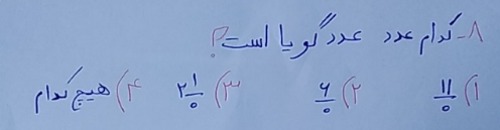 ۸- کدام عدد عدد گویا است؟
۱) ۱۱/۵ ۲) ۶/۵ ۳) ۲ ۱/۵ ۴) هیچ کدام